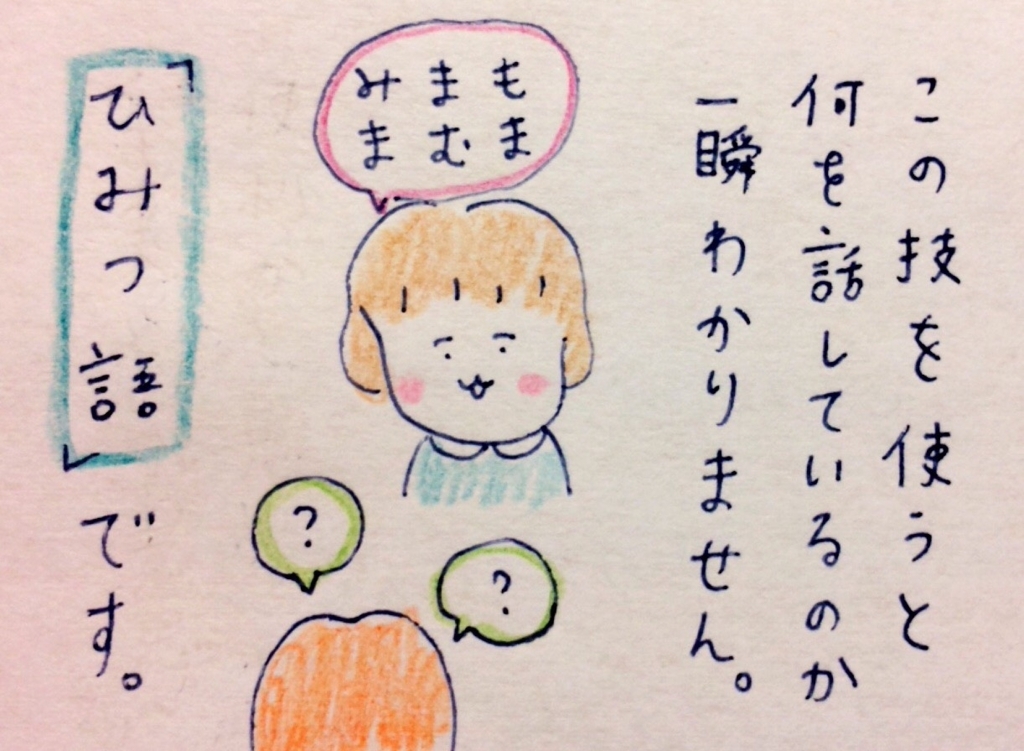 この技を使うと
何を話しているのか
一瞬わかりません。
もま
まむ
みま
?
?
「ひみつ語」です。